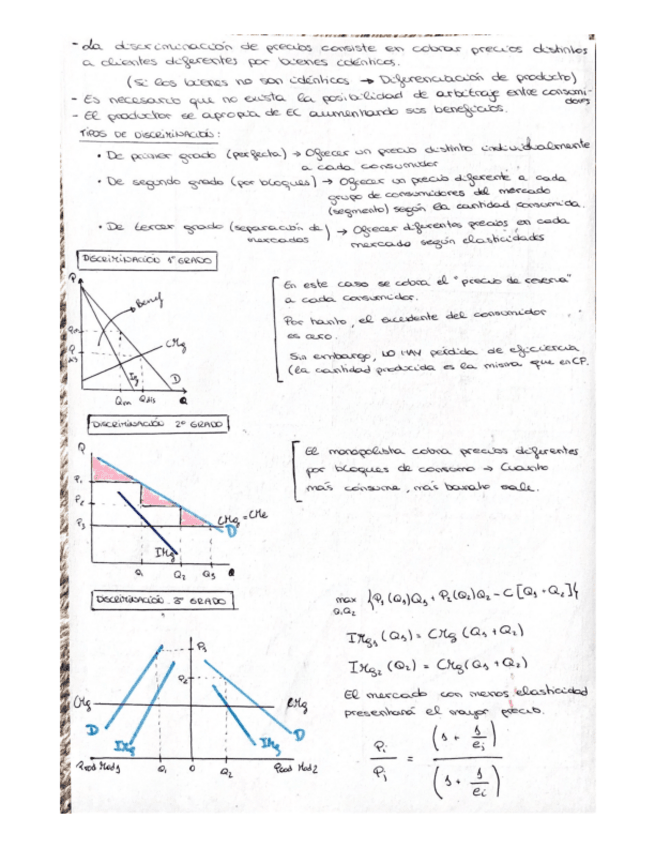 - La discriminación de precios consiste en cobrar precios distintos
a clientes diferentes por bienes idénticos.
(si los bienes no son idénticos → Diferenciación de producto)
- Es necesario que no exista la posibilidad de arbitraje entre consumi-
dores
- El productor se apropia de EC aumentando sus beneficios.
TIPOS DE DISCRIMINACIÓN:
• De primer grado (perfecta) → Ofrecer un precio distinto individualmente
a cada consumidor
• De segundo grado (por bloques) → Ofrecer un precio diferente a cada
grupo de consumidores del mercado
(segmento) según la cantidad consumida.
• De tercer grado (separación de mercados) → Ofrecer diferentes precios en cada
mercado según elasticidades
DISCRIMINACIÓN 1º GRADO
P
Benef
Pm
P
CMg
IMg
D
Qm Qdis Q
En este caso se cobra el "precio de reserva"
a cada consumidor.
Por tanto, el excedente del consumidor
es cero.
Sin embargo, NO HAY pérdida de eficiencia
(la cantidad producida es la misma que en CP.
DISCRIMINACIÓN 2º GRADO
P
P1
P2
P3
CMg = CMe
D
IMg
Q1 Q2 Q3 Q
El monopolista cobra precios diferentes
por bloques de consumo → Cuanto
más consume, más barato sale.
DISCRIMINACIÓN 3º GRADO
P1
P2
CMg
CMg
D
IMg
IMg
D
Prod Mad1 Q1 0 Q2 Prod Mad2
max {P1(Q1)Q1 + P2(Q2)Q2 - C[Q1+Q2]}
Q1Q2
IMg1 (Q1) = CMg (Q1 + Q2)
IMg2 (Q2) = CMg (Q1 + Q2)
El mercado con menos elasticidad
presentará el mayor precio.
Pi/Pj = (1 + 1/ej) / (1 + 1/ei)